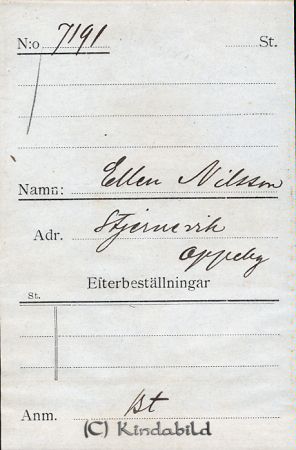 N:o 7191 St.
Namn: Ellen Nilsson
Adr. Stjernevik
Oppeby
Efterbeställningar
St.
Anm. Bt
(C) Kindabild